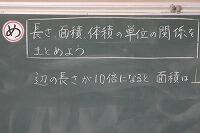 め
長さ、面積、体積の単位の関係を
まとめよう
辺の長さが10倍になると 面積は